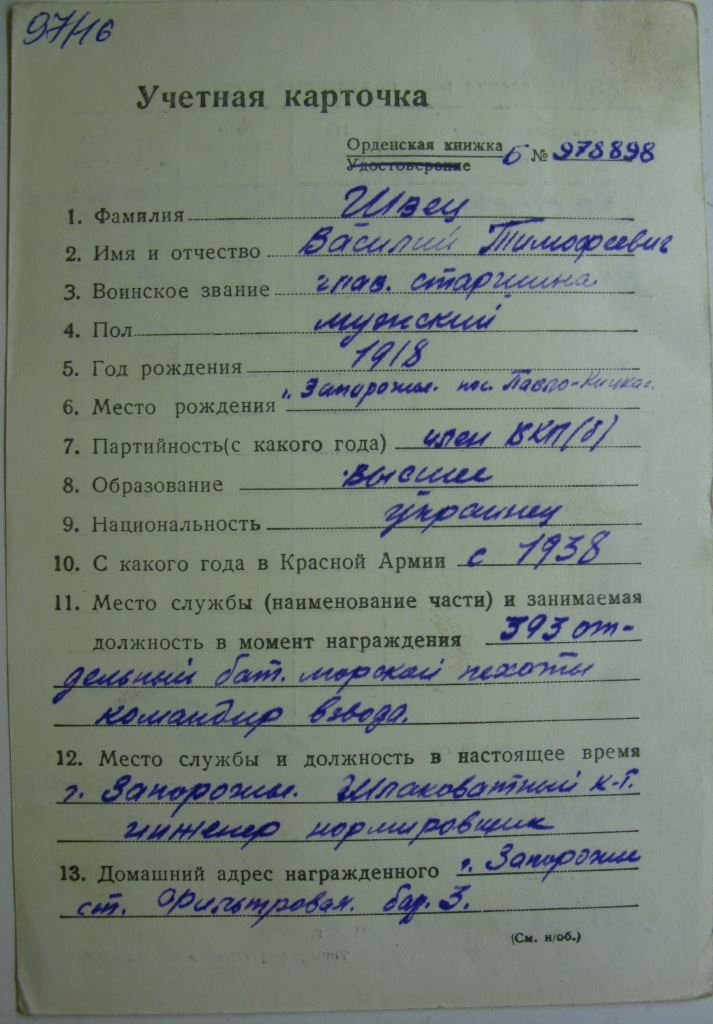 97/16
Учетная карточка
Орденская книжка
Удостоверение Б № 978898
1. Фамилия Швец
2. Имя и отчество Василий Тимофеевич
3. Воинское звание глав. старшина
4. Пол мужской
5. Год рождения 1918
6. Место рождения г. Запорожье. пос. Павло-Кичкас
7. Партийность(с какого года) член ВКП(б)
8. Образование высшее
9. Национальность украинец
10. С какого года в Красной Армии с 1938
11. Место службы (наименование части) и занимаемая
должность в момент награждения 393 от-
дельный бат. морской пехоты
командир взвода.
12. Место службы и должность в настоящее время
г. Запорожье. Шлаковатный к-т.
инженер нормировщик
13. Домашний адрес награжденного г. Запорожье
ст. Фильтровая. бар. 3.
(См. н/об.)